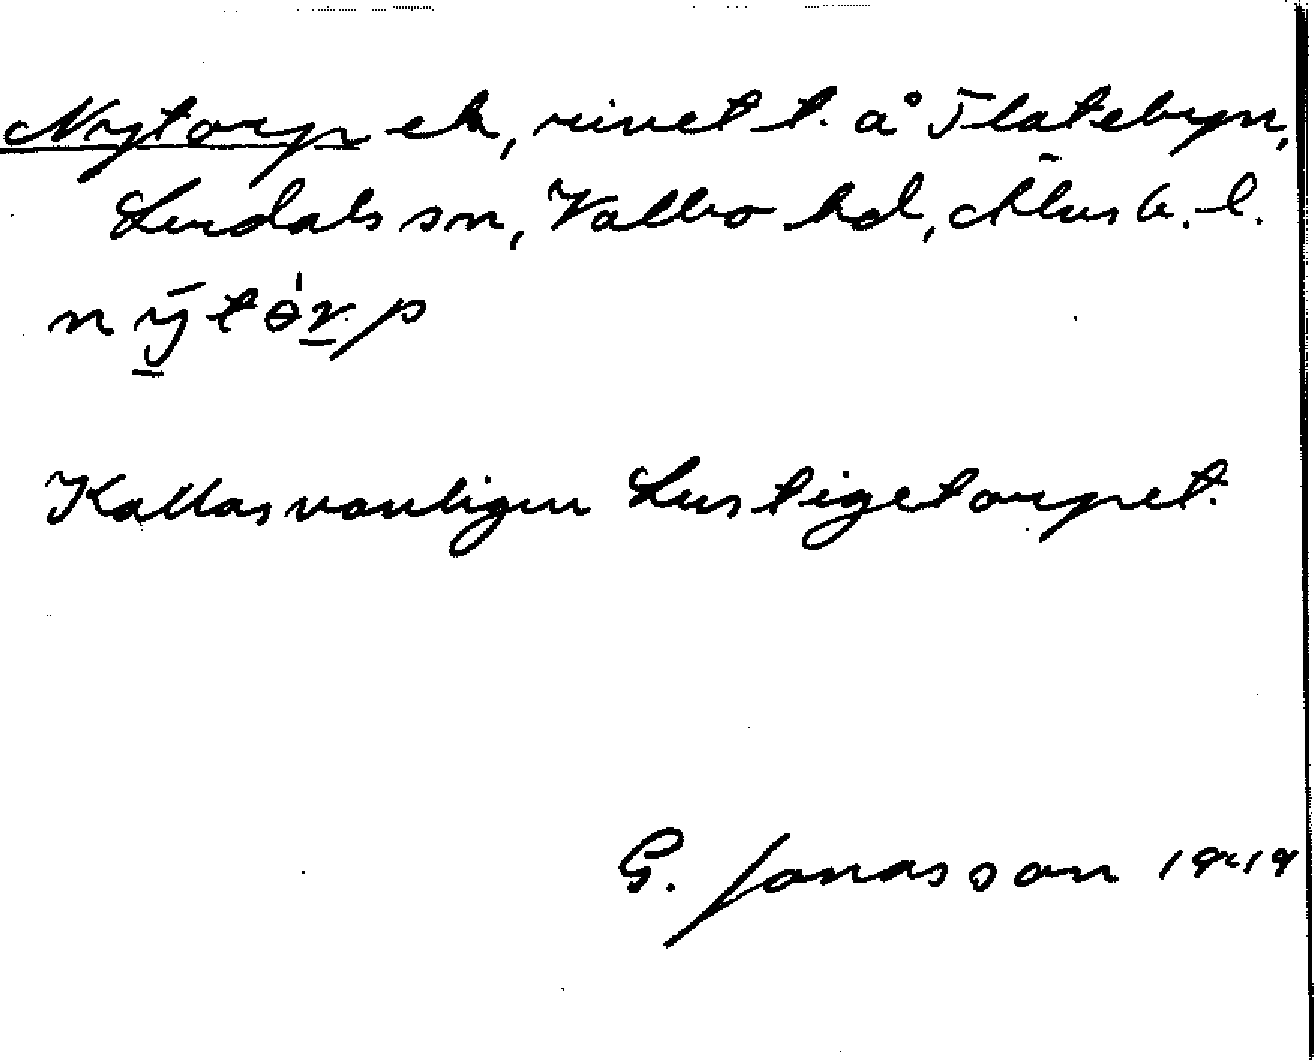 Nytorp ek, rivet t. å Flatebyn,
Lerdals sn, Valbo hd, Älvsb. l.
nýtórp
Kallas vanligen Lustigetorpet.
G. Jonasson